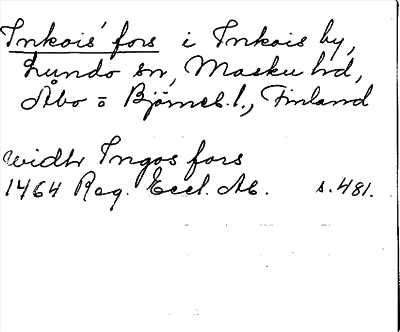 Inkois' fors i Inkois by,
Lundo sn, Masku hd,
Åbo o Björneb. l., Finland
widh Ingos fors
1464 Reg. Eccl. Ab. s. 481.